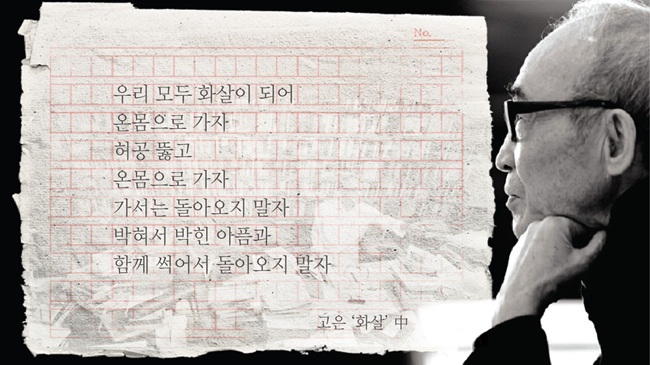 No.
우리 모두 화살이 되어
온몸으로 가자
허공 뚫고
온몸으로 가자
가서는 돌아오지 말자
박혀서 박힌 아픔과
함께 썩어서 돌아오지 말자
고은 ‘화살’ 中